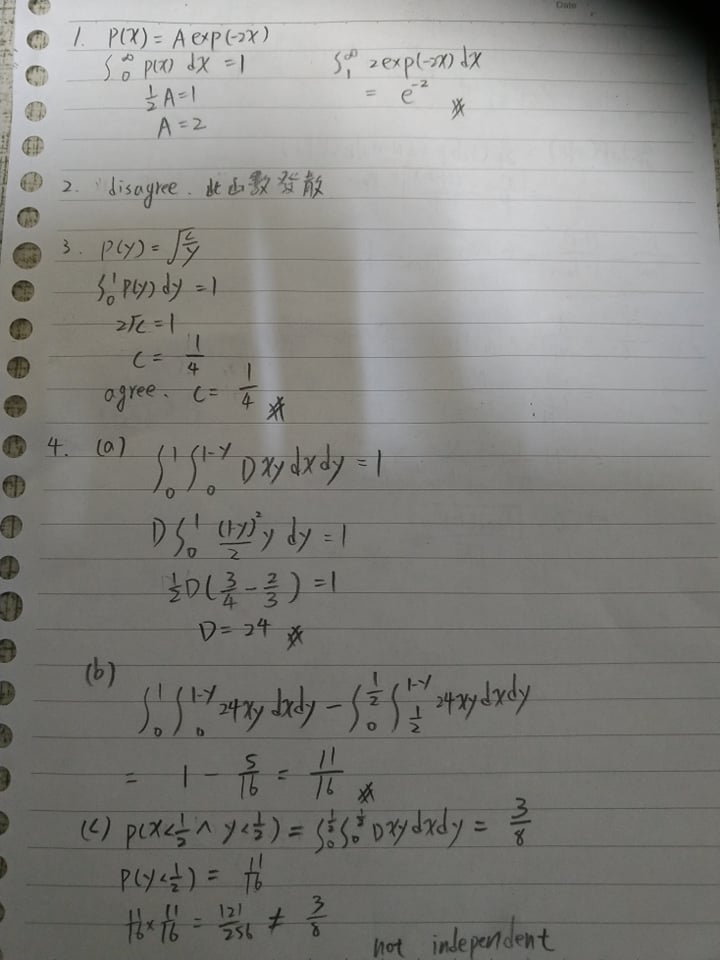 Date
1. P(X) = A exp(-2x)
∫₀^∞ p(x) dx = 1    ∫₁^∞ 2exp(-2x) dx
½A = 1    = e⁻²
A = 2
2. disagree. 此函數發散
3. P(y) = √(c/y)
∫₀¹ P(y) dy = 1
2√c = 1
C = 1/4
agree. C = 1/4
4. (a) ∫₀¹ ∫₀^(1-y) Dxy dx dy = 1
D ∫₀¹ (1-y)²/2 y dy = 1
½D(3/4 - 2/3) = 1
D = 24
(b)
∫₀¹ ∫₀^(1-y) 24xy dxdy - ∫₀^(1/2) ∫_(1/2)^(1-y) 24xy dxdy
= 1 - 5/16 = 11/16
(c) p(x<½ ∧ y<½) = ∫₀^½ ∫₀^½ Dxy dxdy = 3/8
P(y<½) = 11/16
11/16 × 11/16 = 121/256 ≠ 3/8
not independent